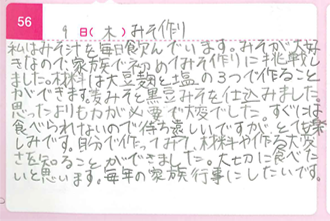 56
9日(木)みそ作り
私はみそ汁を毎日飲んでいます。みそが大好
きなので家族で初めてみそ作りに挑戦し
ました。材料は大豆麹と塩の3つで作ること
ができます。麦みそと黒豆みそを仕込みました。
思ったよりも力が必要で大変でした。すぐには
食べられないので待ち遠しいですが、とても楽
しみです。自分で作ってみて、材料や作る大変
さを知ることができました。大切に食べた
いと思います。毎年の家族行事にしたいです。